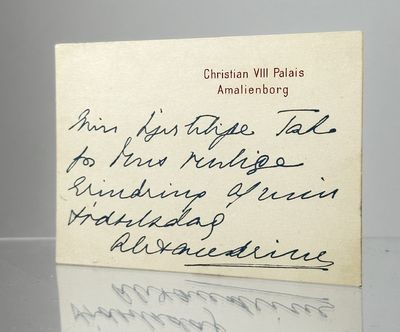 Christian VIII Palais
Amalienborg
Min hjertelige Tak
for Deres venlige
Erindring af min
Fødselsdag
Alexandrine